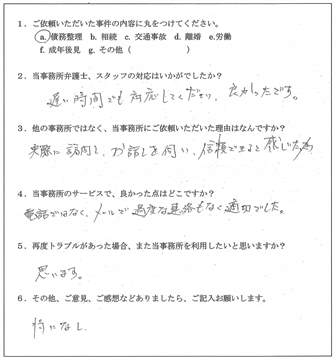 1．ご依頼いただいた事件の内容に丸をつけてください。
a. 債務整理 b. 相続 c. 交通事故 d. 離婚 e.労働
f. 成年後見 g. その他（　　　　　）
2．当事務所弁護士、スタッフの対応はいかがでしたか？
遅い時間でも対応してくださり、良かったです。
3．他の事務所ではなく、当事務所にご依頼いただいた理由はなんですか？
実際に訪問し、お話しを伺い、信頼できると感じた為
4．当事務所のサービスで、良かった点はどこですか？
電話ではなく、メールで過度な連絡もなく適切でした。
5．再度トラブルがあった場合、また当事務所を利用したいと思いますか？
思います。
6．その他、ご意見、ご感想などありましたら、ご記入お願いします。
特になし